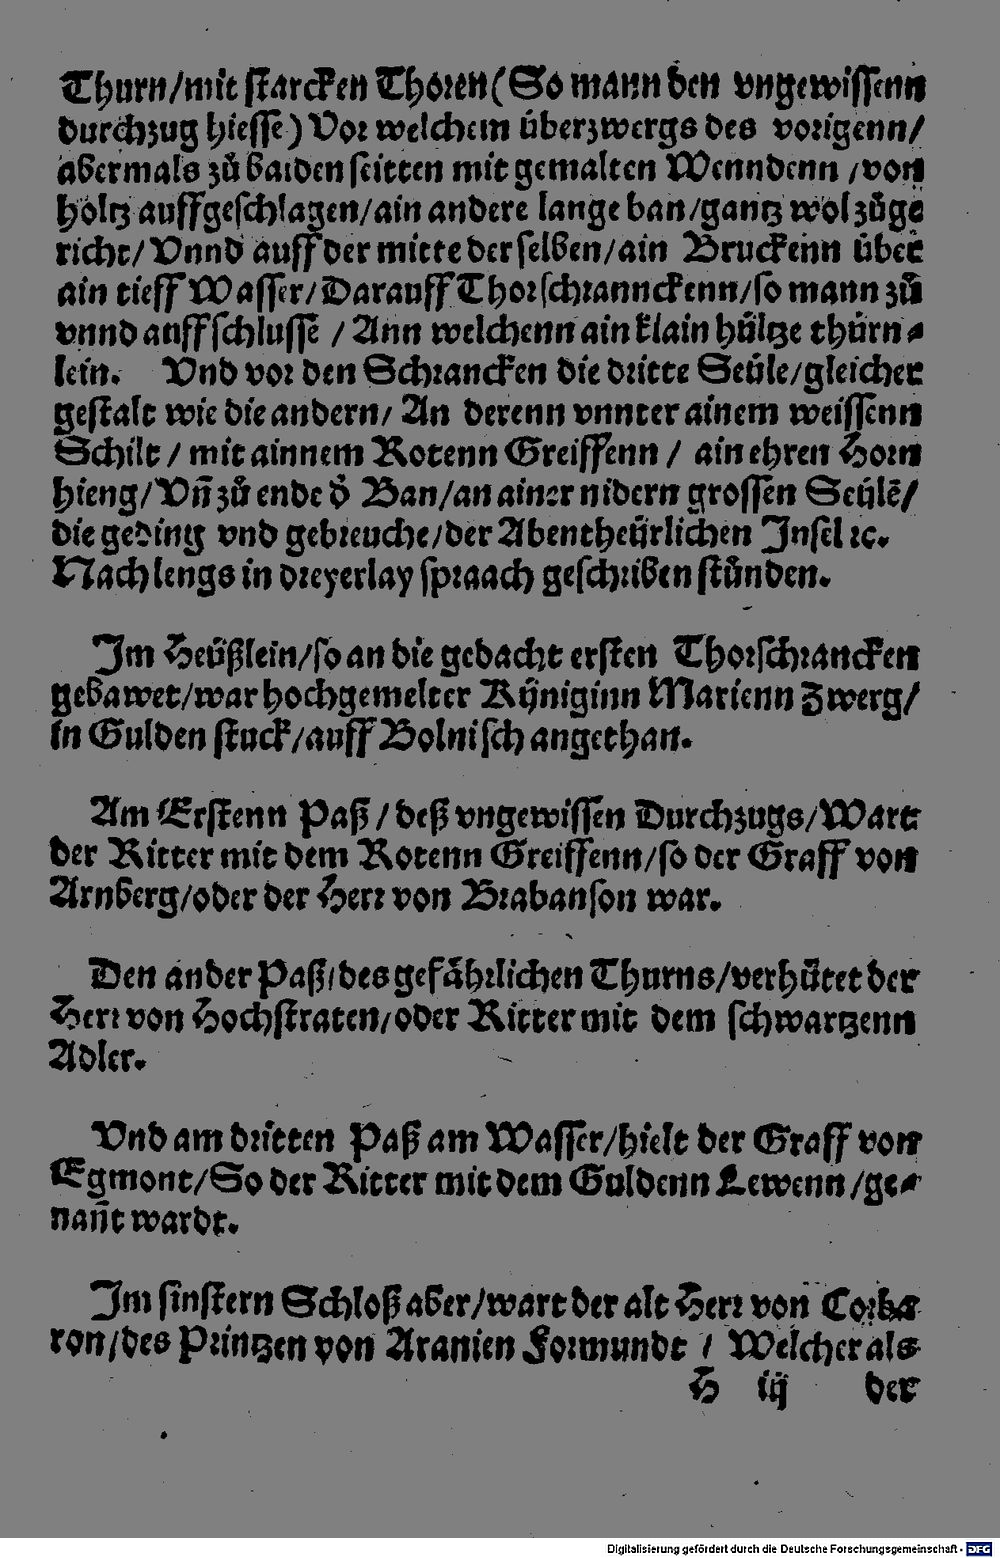 Thurn/mit starcken Thoren (So mann den vngewissenn
durchzug hiesse) Vor welchem überzwergs des vorigenn/
abermals zů baiden seitten mit gemalten Wenndenn /von
holtz auffgeschlagen/ain andere lange ban/gantz wol zůge
richt/ Vnnd auff der mitte der selben/ain Bruckenn über
ain tieff Wasser/Darauff Thorschrannckenn/so mann zů
vnnd auffschlusse / Ann welchenn ain klain hültze thürn⸗
lein. Vnd vor den Schrancken die dritte Seüle/gleicher
gestalt wie die andern/ An derenn vnnter ainem weissenn
Schilt / mit ainnem Rotenn Greiffenn / ain ehren Horn
hieng/Vñ zů ende d̕ Ban/an ainer nidern grossen Seülē/
die geding vnd gebreuche/der Abentheürlichen Insel ꝛc.
Nach lengs in dreyerlay spraach geschriben stůnden.
Im Heüßlein/so an die gedacht ersten Thorschrancken
gebawet/war hochgemelter Küniginn Marienn Zwerg/
in Gulden stuck/auff Bolnisch angethan.
Am Erstenn Paß / deß vngewissen Durchzugs/Wart
der Ritter mit dem Rotenn Greiffenn/so der Graff von
Arnberg/oder der Herr von Brabanson war.
Den ander Paß/des gefährlichen Thurns/verhütet der
Herr von Hochstraten/oder Ritter mit dem schwartzenn
Adler.
Vnd am dritten Paß am Wasser/hielt der Graff von
Egmont/So der Ritter mit dem Guldenn Lewenn /ge⸗
nañt wardt.
Im finstern Schloß aber/wart der alt Herr von Corba
ron/des Printzen von Aranien Formundt / Welcher als
H iij der
Digitalisierung gefördert durch die Deutsche Forschungsgemeinschaft - DFG